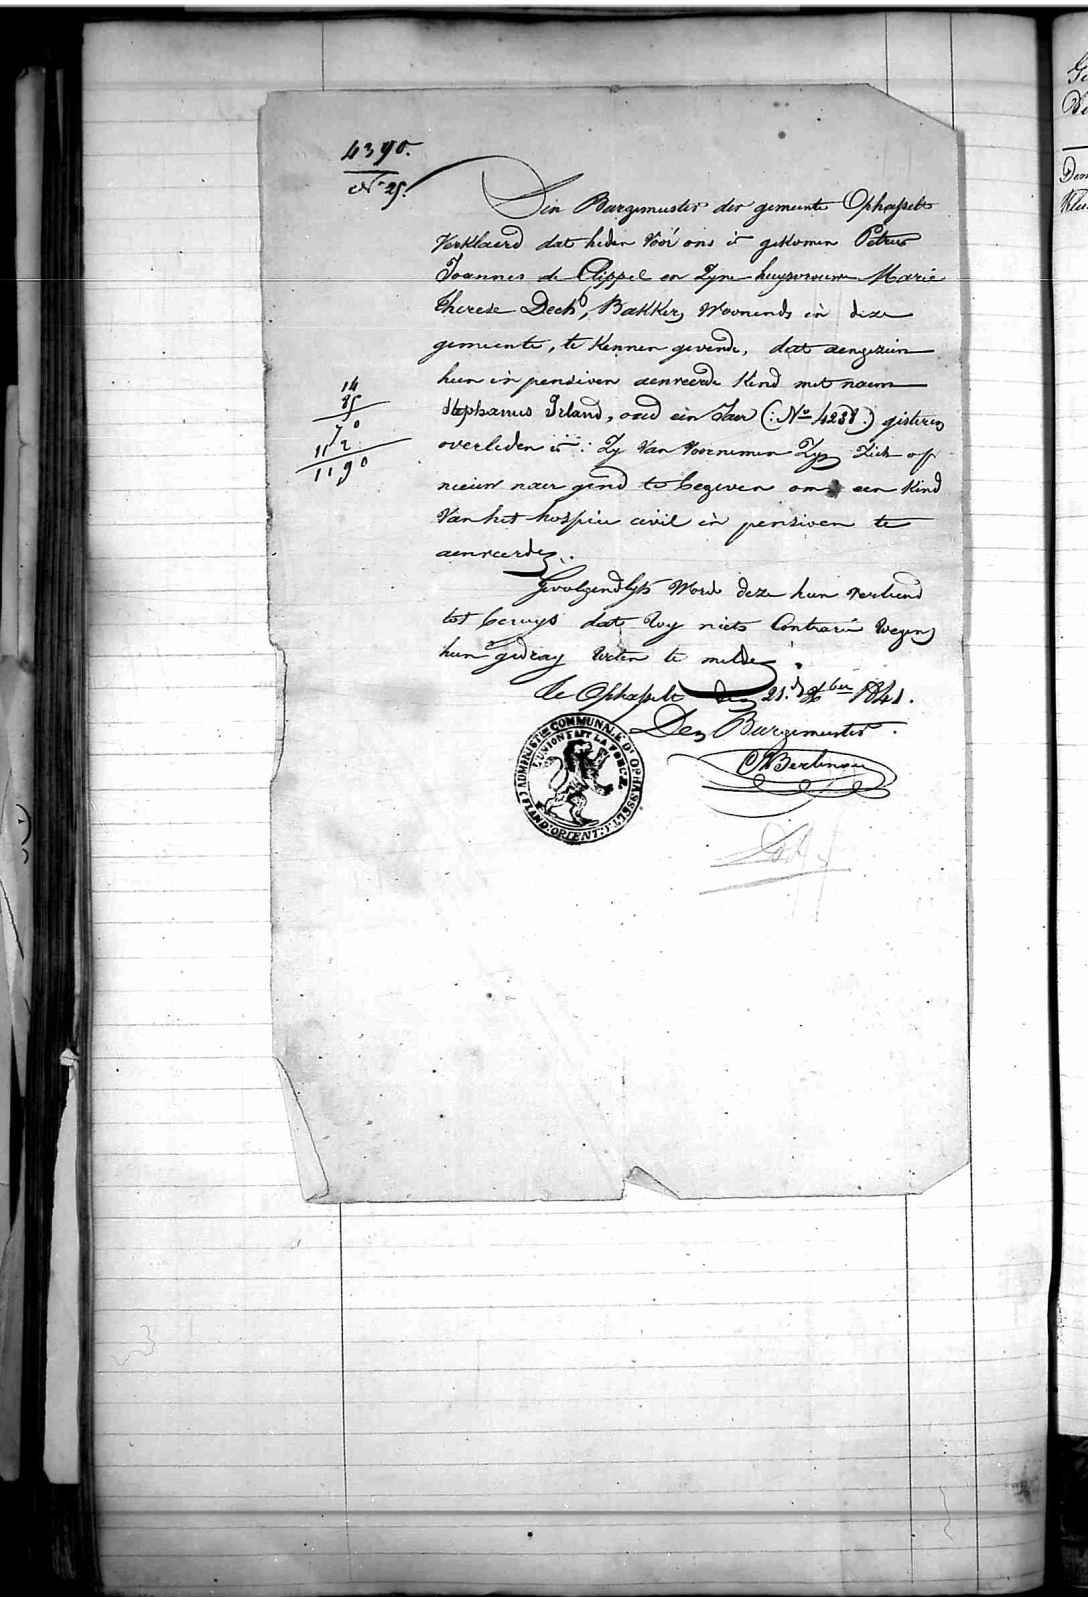 4390.
N° 25.
Den Burgemeester der gemeente Ophasselt
Verklaerd dat heden vóór ons is gekomen Petrus
Joannes de Clippel en Zyne huysvrouwe Marie
Therese Dech, Bakker, Woonende in deze
gemeente, te kennen gevende, dat aengezien
hun in pensioen aenveerde Kind met naem
Stephanus Irland, oud een Jaer (: N° 4238 :) gisteren
overleden is: Zy Van Voornemen Zyn Zich op
nieuw naer gend te begeven om een Kind
Van het hospice civil in pensioen te
aenveerden.
Gevolgendlyk Word deze hun verleend
tot bewys dat Wy niets Contrarie Wegens
hun gedrag Weten te melden.
14
85
70
112
1190
te Ophasselt den 21. Xber 1841.
Den Burgemeester.
ADMINISTON COMMUNALE D'OPHASSELT
FLAND: ORIENT:
L'UNION FAIT LA FORCE